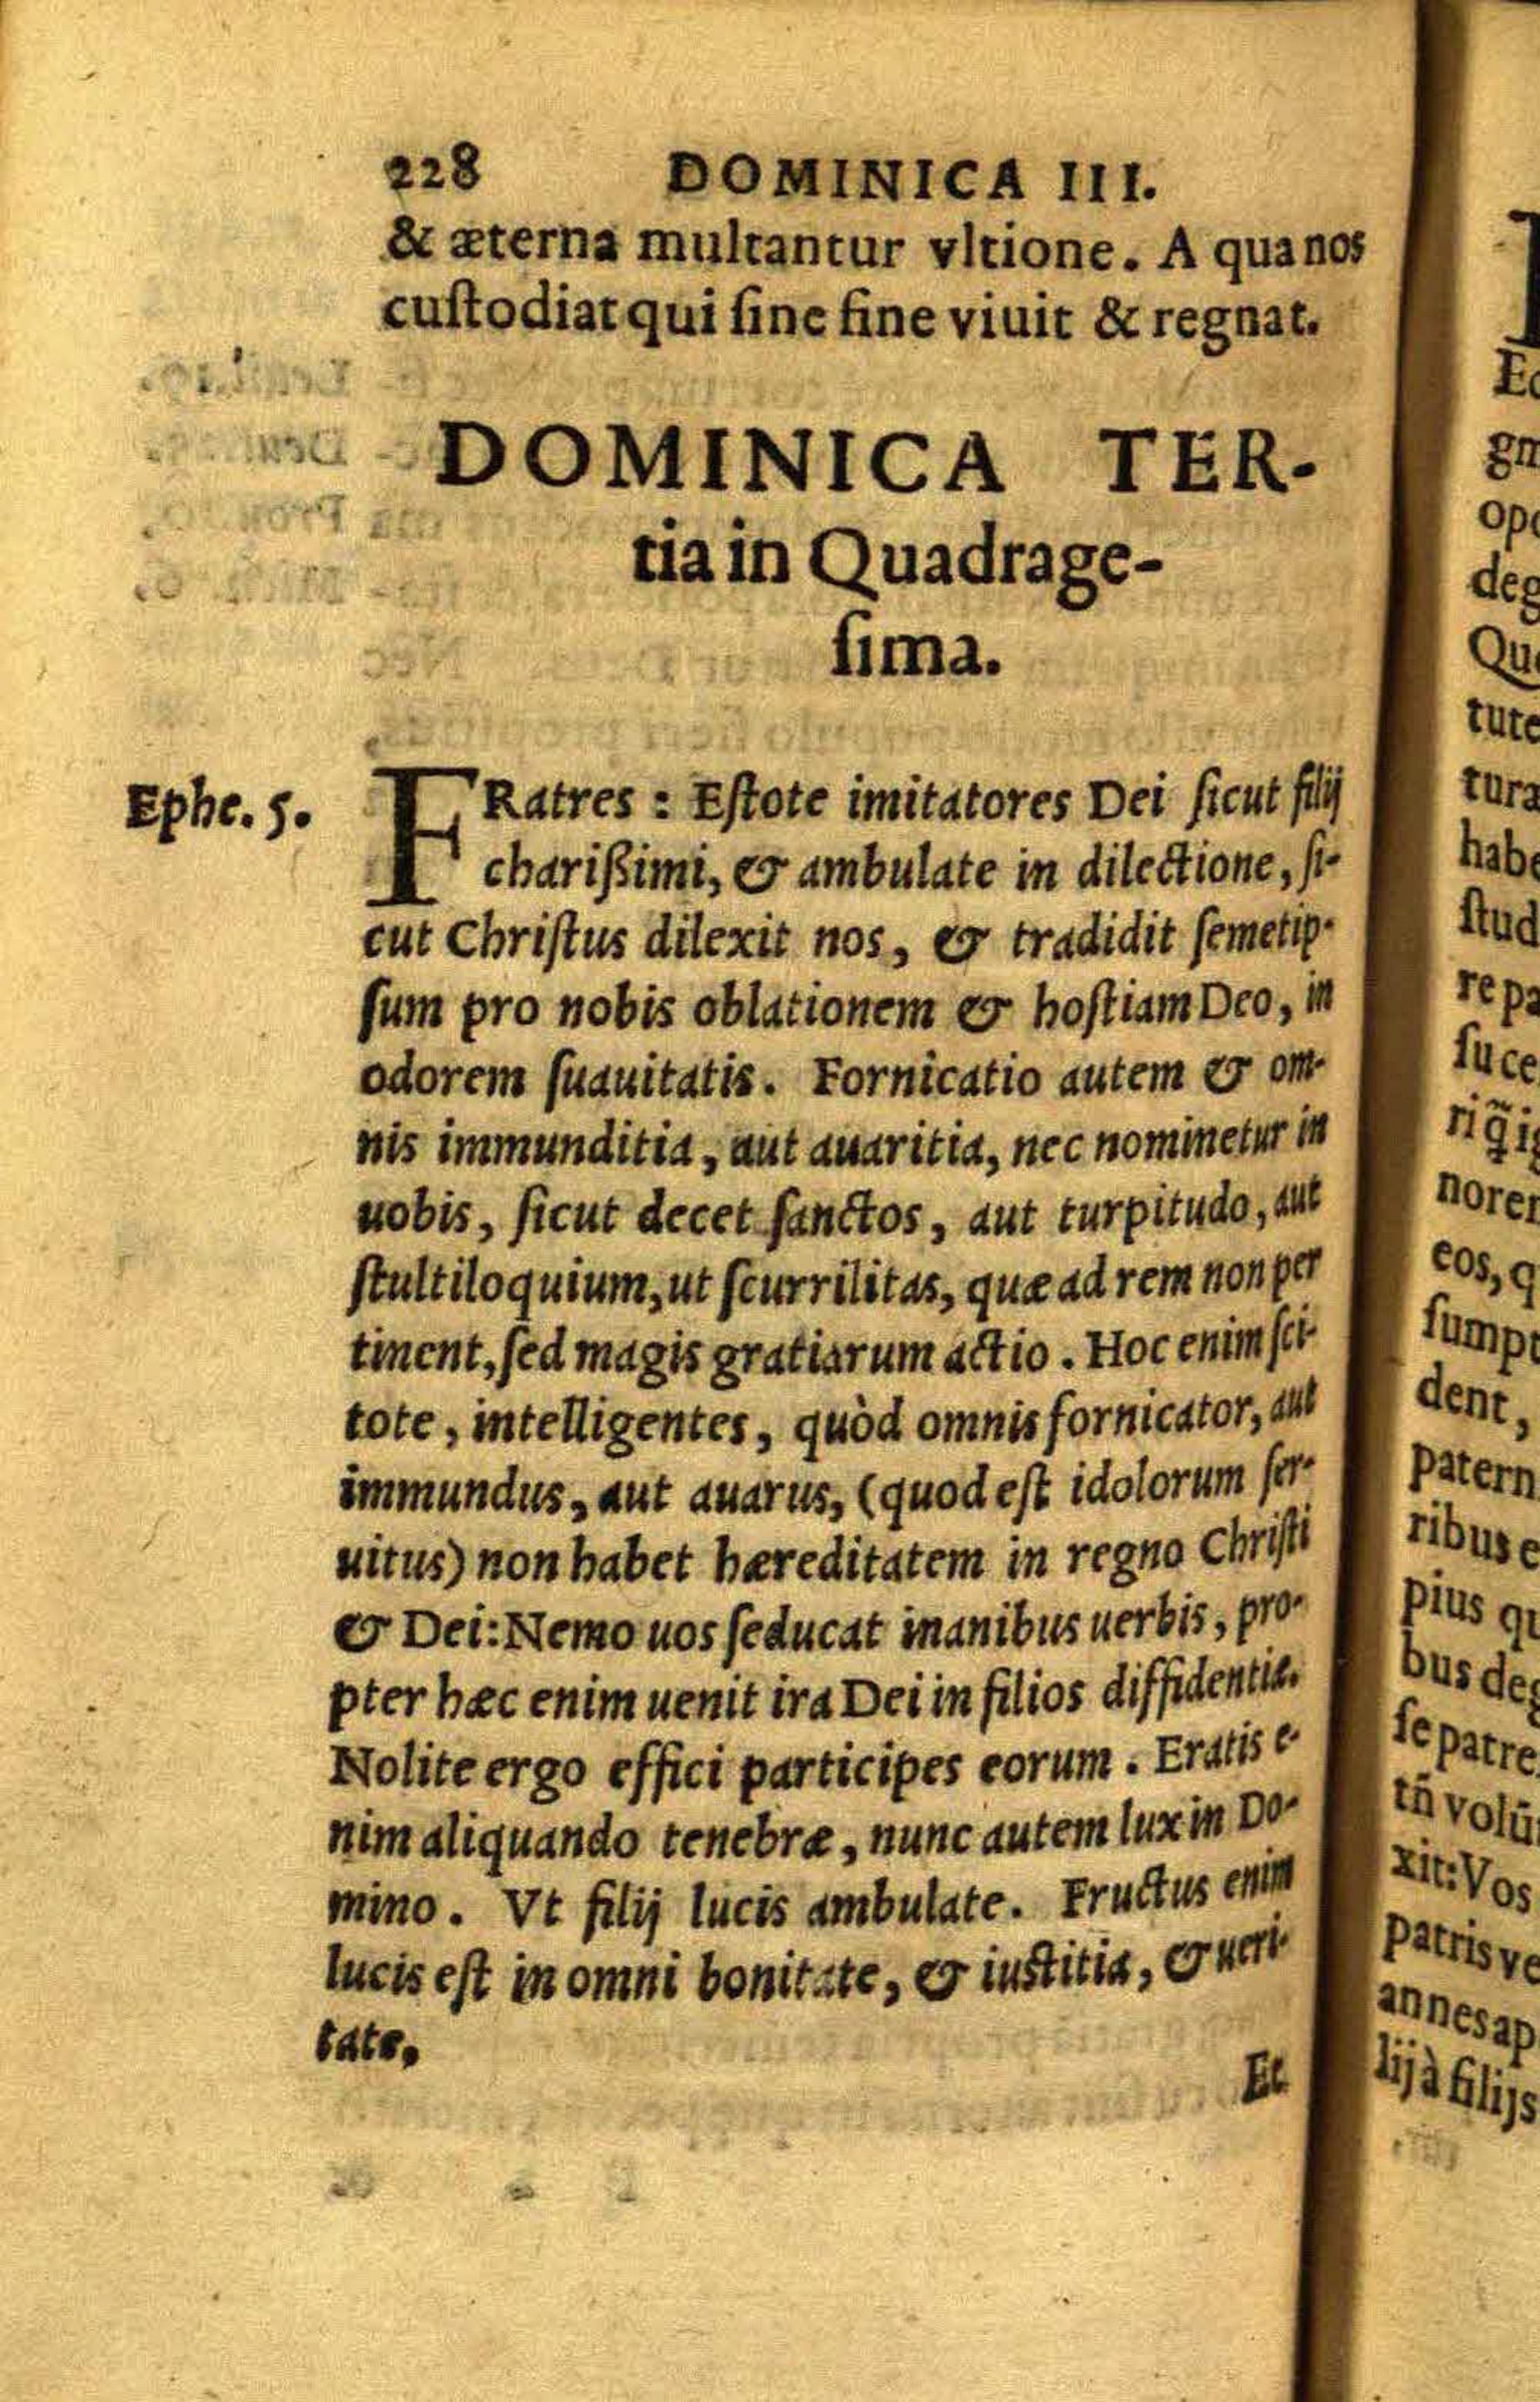 228 DOMINICA III.
& æterna multantur vltione. A qua nos
cuſtodiat qui ſine fine viuit & regnat.
DOMINICA TER-
tia in Quadrage-
ſima.
Ephe. 5.
FRatres : Eſtote imitatores Dei ſicut filij
charißimi, & ambulate in dilectione, ſi-
cut Chriſtus dilexit nos, & tradidit ſemetip-
ſum pro nobis oblationem & hoſtiam Deo, in
odorem ſuauitatis. Fornicatio autem & om-
nis immunditia, aut auaritia, nec nominetur in
uobis, ſicut decet ſanctos, aut turpitudo, aut
ſtultiloquium, ut ſcurrilitas, quæ ad rem non per
tinent, ſed magis gratiarum actio. Hoc enim ſci-
tote, intelligentes, quòd omnis fornicator, aut
immundus, aut auarus, (quod eſt idolorum ſer-
uitus) non habet hæreditatem in regno Chriſti
& Dei: Nemo uos ſeducat inanibus uerbis, pro-
pter hæc enim uenit ira Dei in filios diffidentiæ.
Nolite ergo effici participes eorum. Eratis e-
nim aliquando tenebræ, nunc autem lux in Do-
mino. Vt filij lucis ambulate. Fructus enim
lucis eſt in omni bonitate, & iuſtitia, & ueri-
tate,
Et
Ec
gn
opo
deg
Qu
tute
tura
habe
ſtud
re pa
ſu ce
norer
eos, q
ſumpt
dent,
patern
ribus e
pius qu
bus deg
ſe patre
tñ volũ
xit: Vos
patris ve
annes ap
lij à filijs